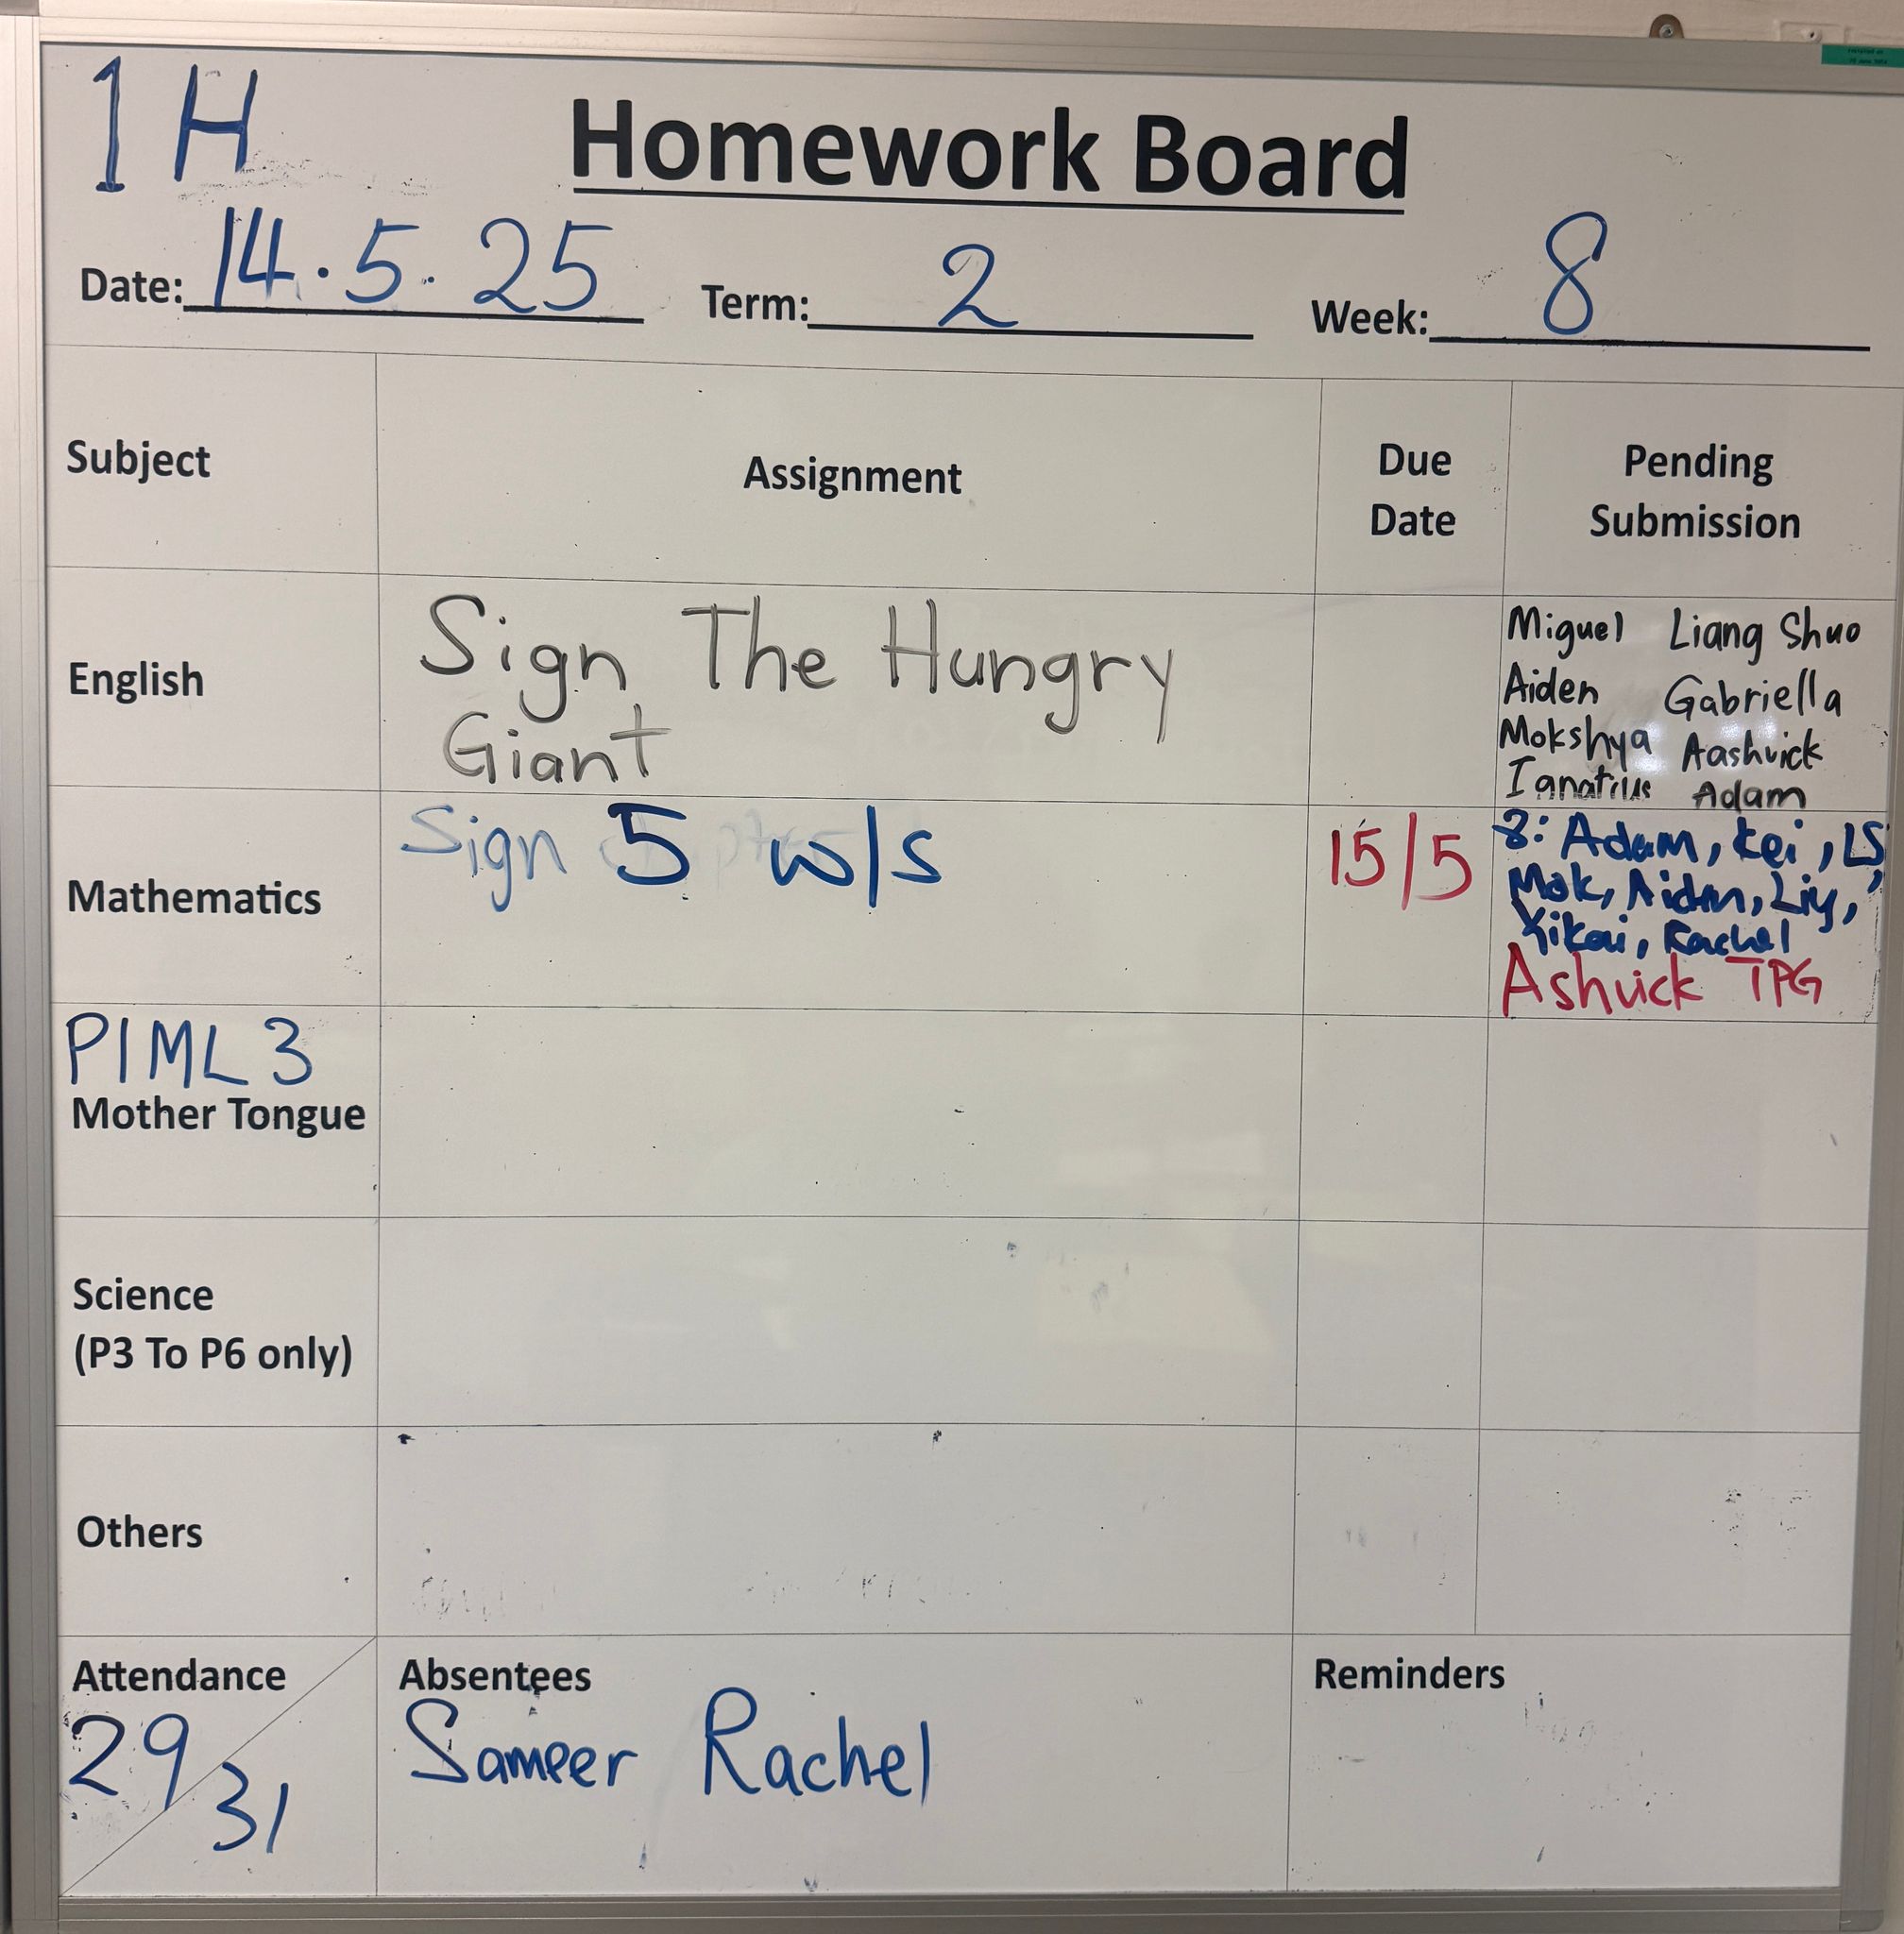 1H
Homework Board
Date: 14.5.25 Term: 2 Week: 8
Subject
Assignment
Due
Date
Pending
Submission
English
Sign The Hungry
Giant
Miguel Liang Shuo
Aiden Gabriella
Mokshya Aashvick
Ignatius Adam
Mathematics
Sign 5 w/s
15/5
8: Adam, Kei, LS,
Mok, Aiden, Liy,
Yikai, Rachel
Ashvick TPG
P1ML3
Mother Tongue
Science
(P3 To P6 only)
Others
Attendance
29
31
Absentees
Sameer Rachel
Reminders